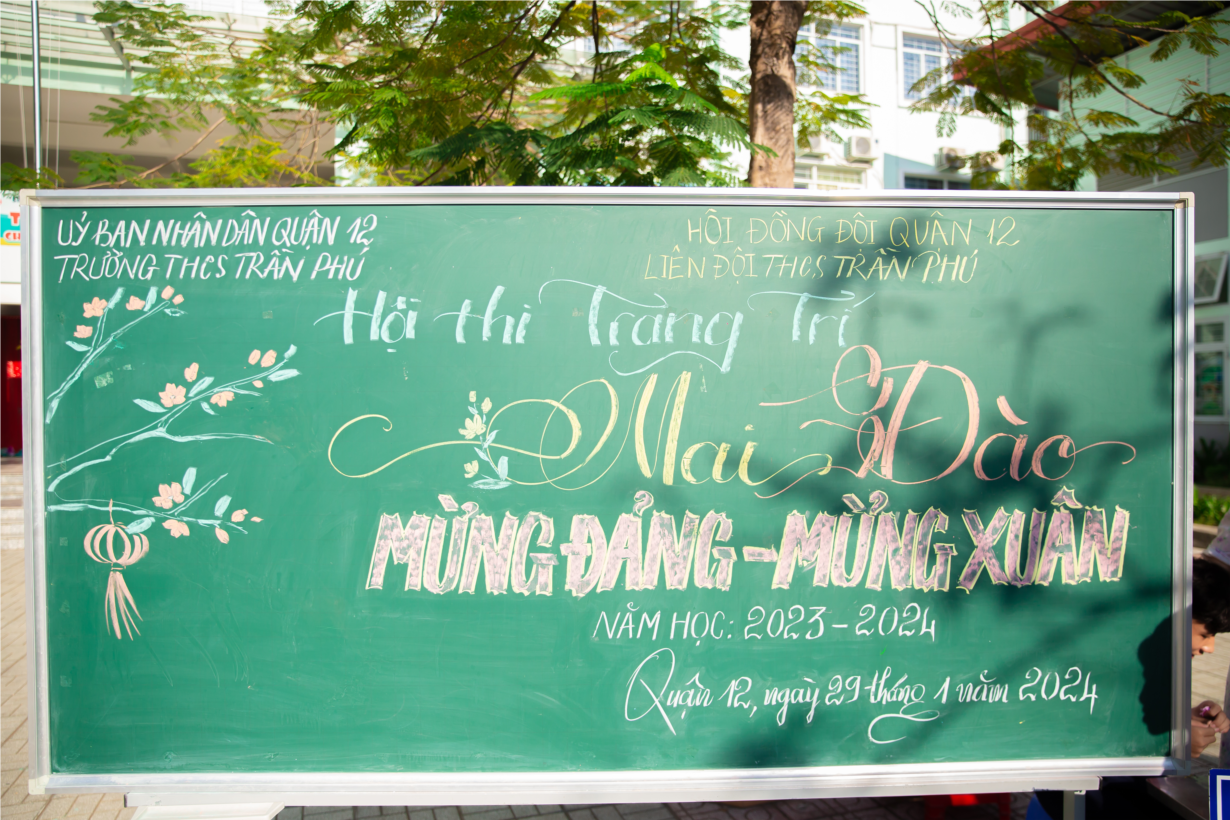 UỶ BAN NHÂN DÂN QUẬN 12
TRƯỜNG THCS TRẦN PHÚ
HỘI ĐỒNG ĐỘI QUẬN 12
LIÊN ĐỘI THCS TRẦN PHÚ
Hội thi Trang Trí
Mai Đào
MỪNG ĐẢNG - MỪNG XUÂN
NĂM HỌC: 2023 - 2024
Quận 12, ngày 29 tháng 1 năm 2024